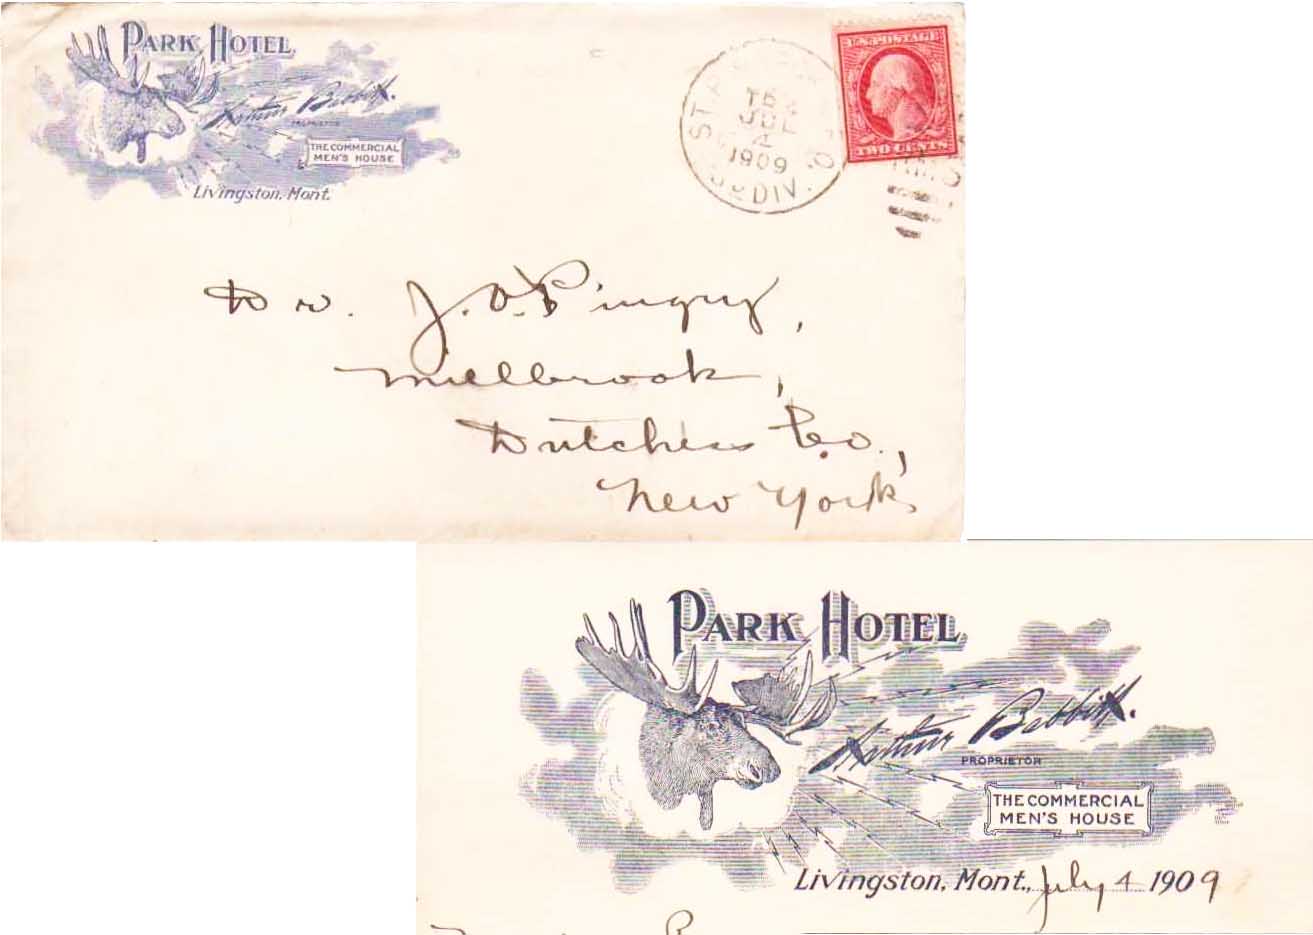 PARK HOTEL
Arthur Babbitt.
PROPRIETOR
THE COMMERCIAL
MEN'S HOUSE
Livingston, Mont.
JUL
4
1909
DIV.
U.S. POSTAGE
TWO CENTS
Dr. J. O. Pingry,
Millbrook,
Dutchess Co.,
New York
PARK HOTEL
Arthur Babbitt.
PROPRIETOR
THE COMMERCIAL
MEN'S HOUSE
Livingston, Mont., July 4 1909